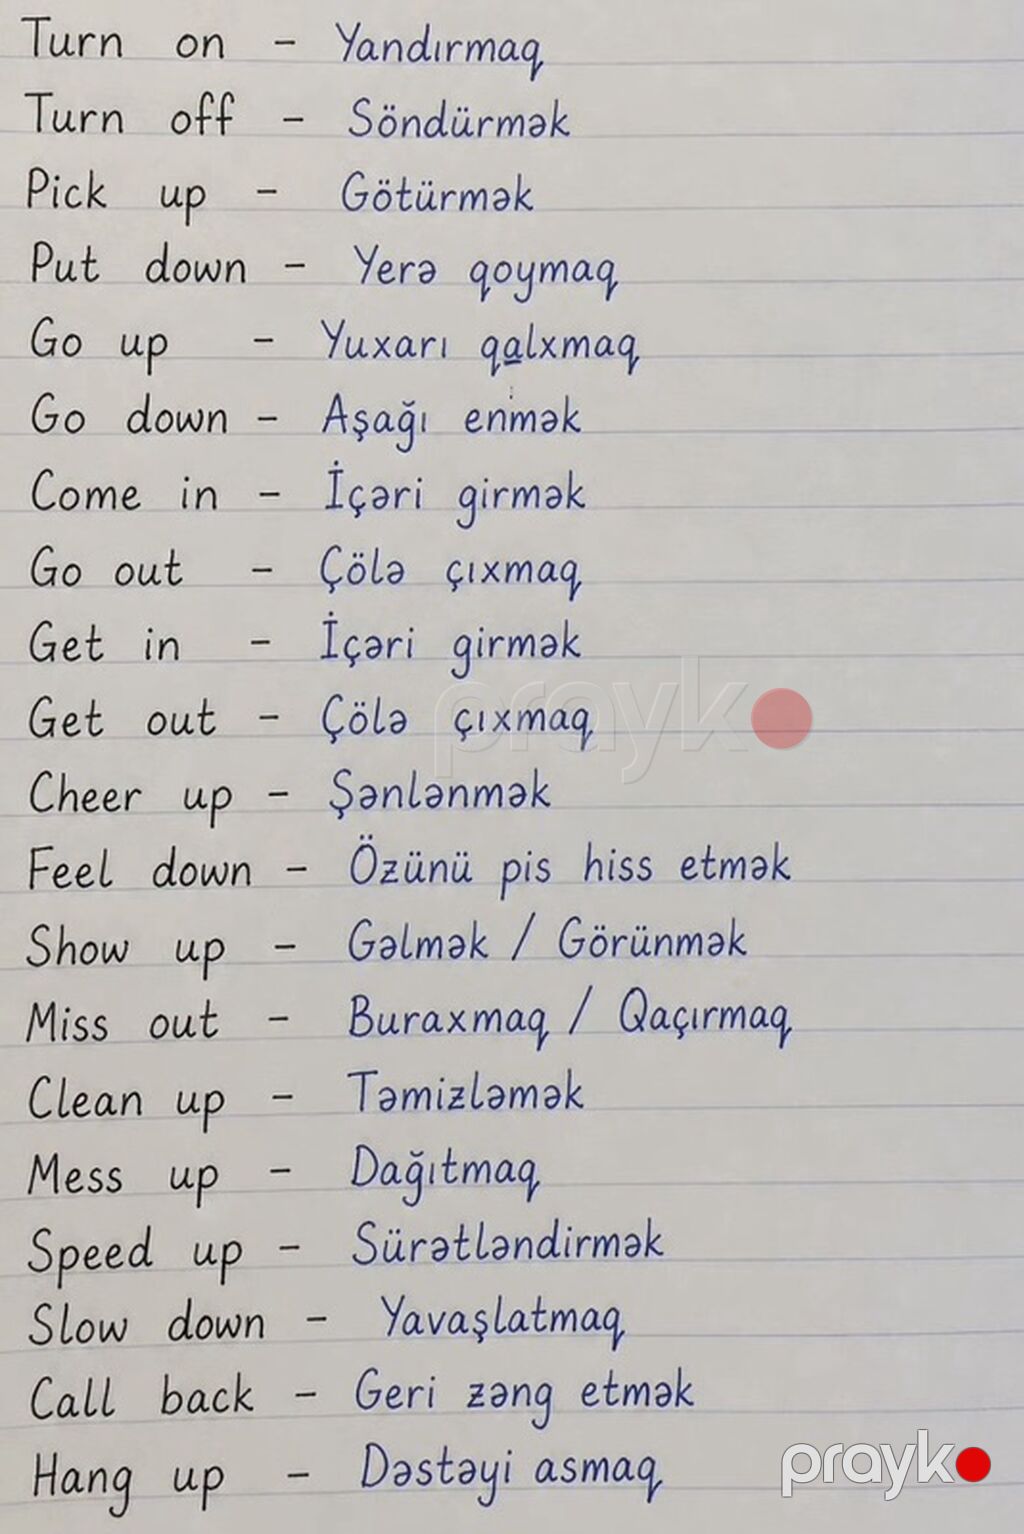 Turn on - Yandırmaq
Turn off - Söndürmək
Pick up - Götürmək
Put down - Yerə qoymaq
Go up - Yuxarı qalxmaq
Go down - Aşağı enmək
Come in - İçəri girmək
Go out - Çölə çıxmaq
Get in - İçəri girmək
Get out - Çölə çıxmaq
prayk
Cheer up - Şənlənmək
Feel down - Özünü pis hiss etmək
Show up - Gəlmək / Görünmək
Miss out - Buraxmaq / Qaçırmaq
Clean up - Təmizləmək
Mess up - Dağıtmaq
Speed up - Sürətləndirmək
Slow down - Yavaşlatmaq
Call back - Geri zəng etmək
Hang up - Dəstəyi asmaq
prayk